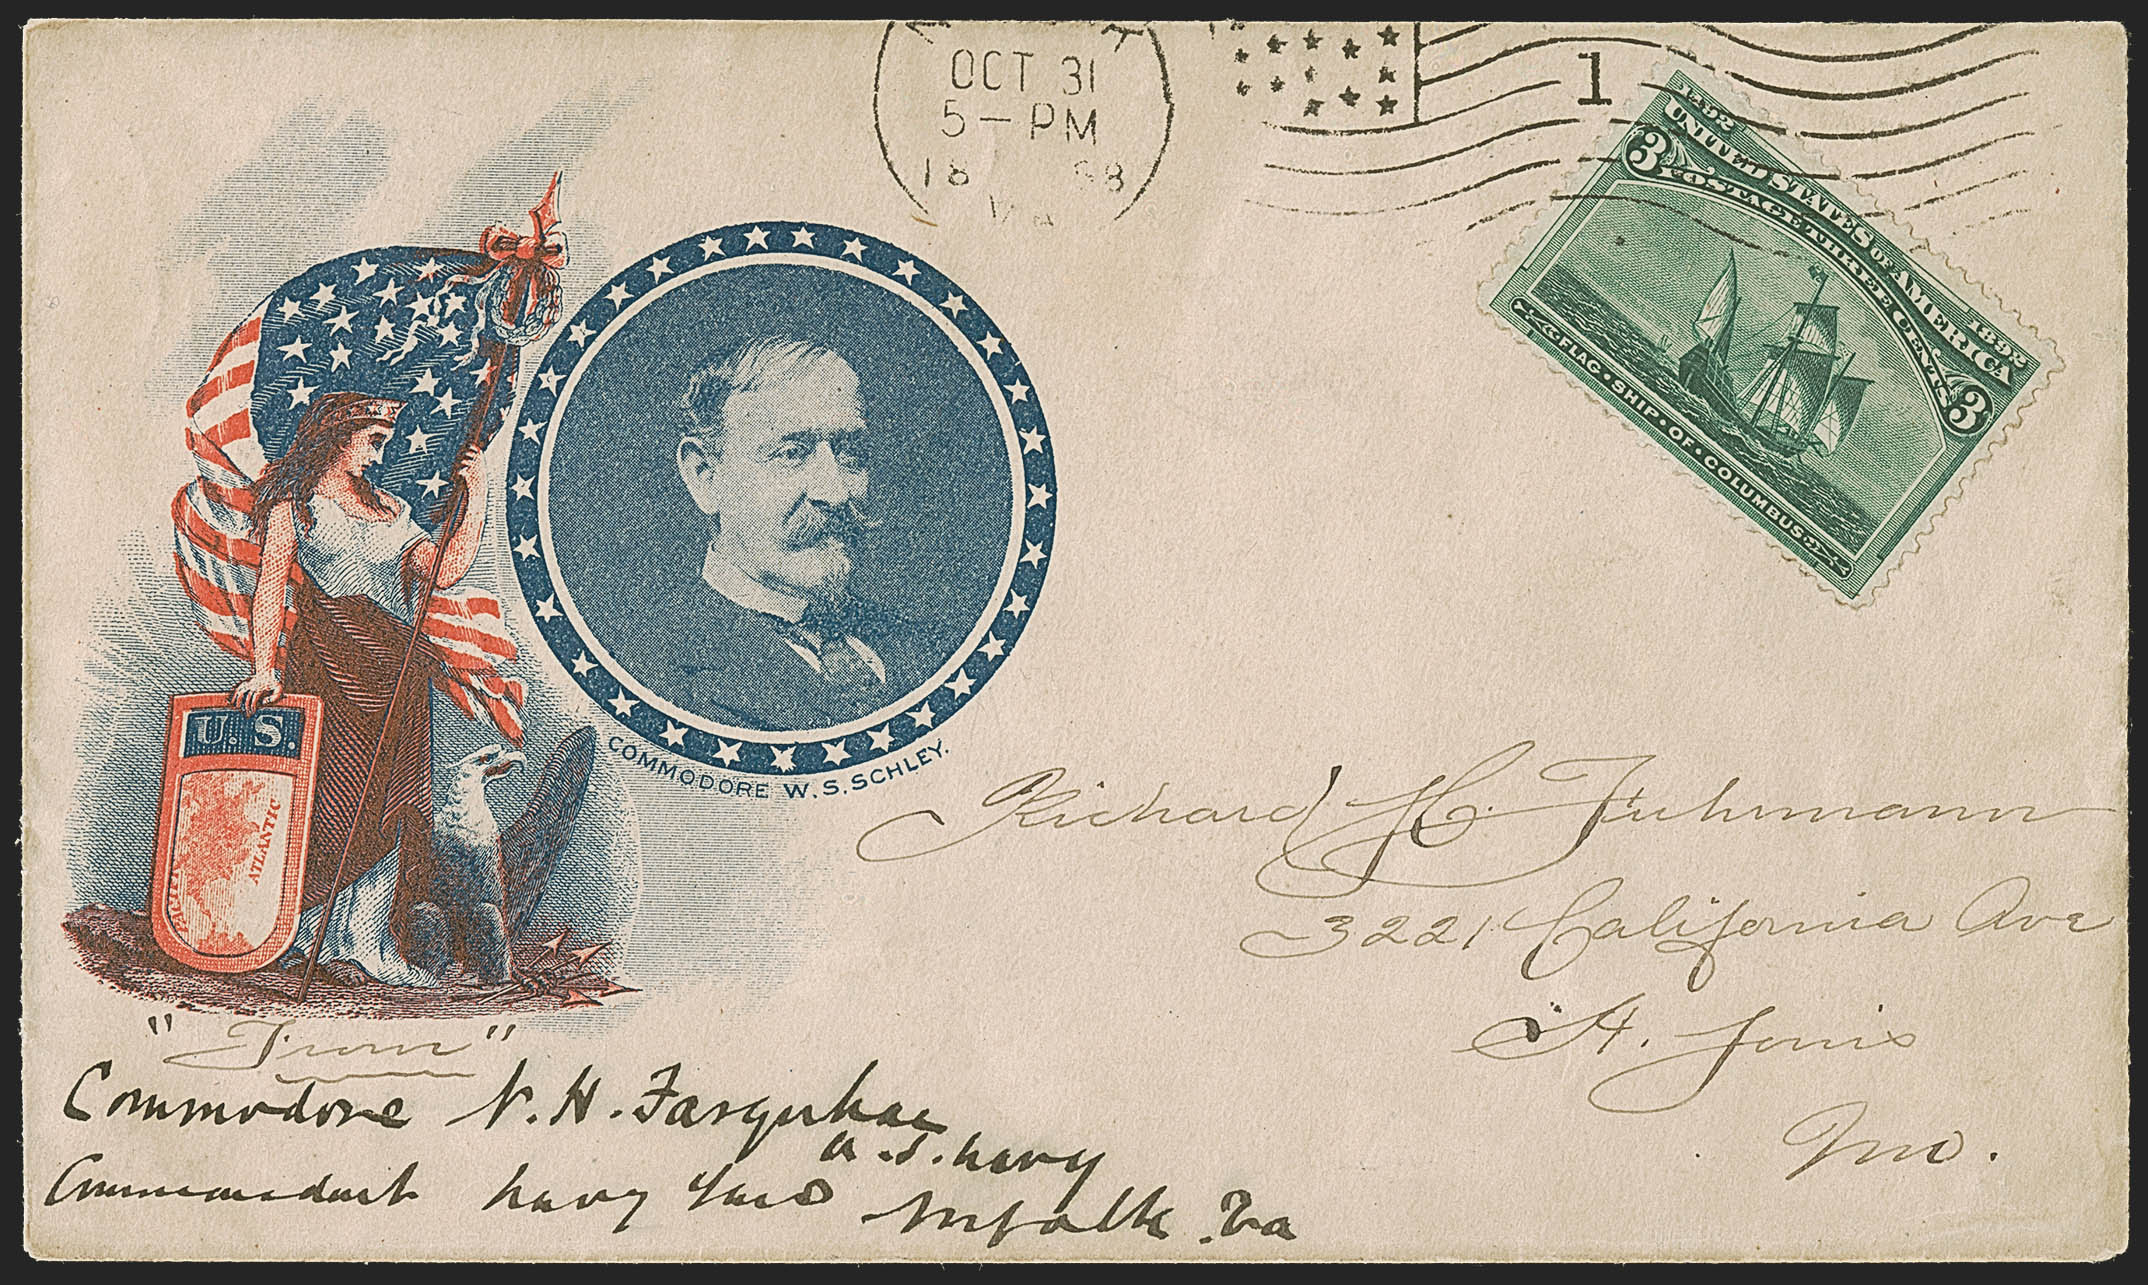 OCT 31
5–PM
18 98
VA
1
1492 1892
UNITED STATES OF AMERICA
POSTAGE THREE CENTS
3 3
FLAG·SHIP·OF·COLUMBUS
U.S.
ATLANTIC
COMMODORE W.S. SCHLEY.
Richard H. Fuhrmann
3221 California Ave
St. Louis
Mo.
"From"
Commodore N. H. Farquhar
U.S. Navy
Commandant Navy Yard Norfolk. Va